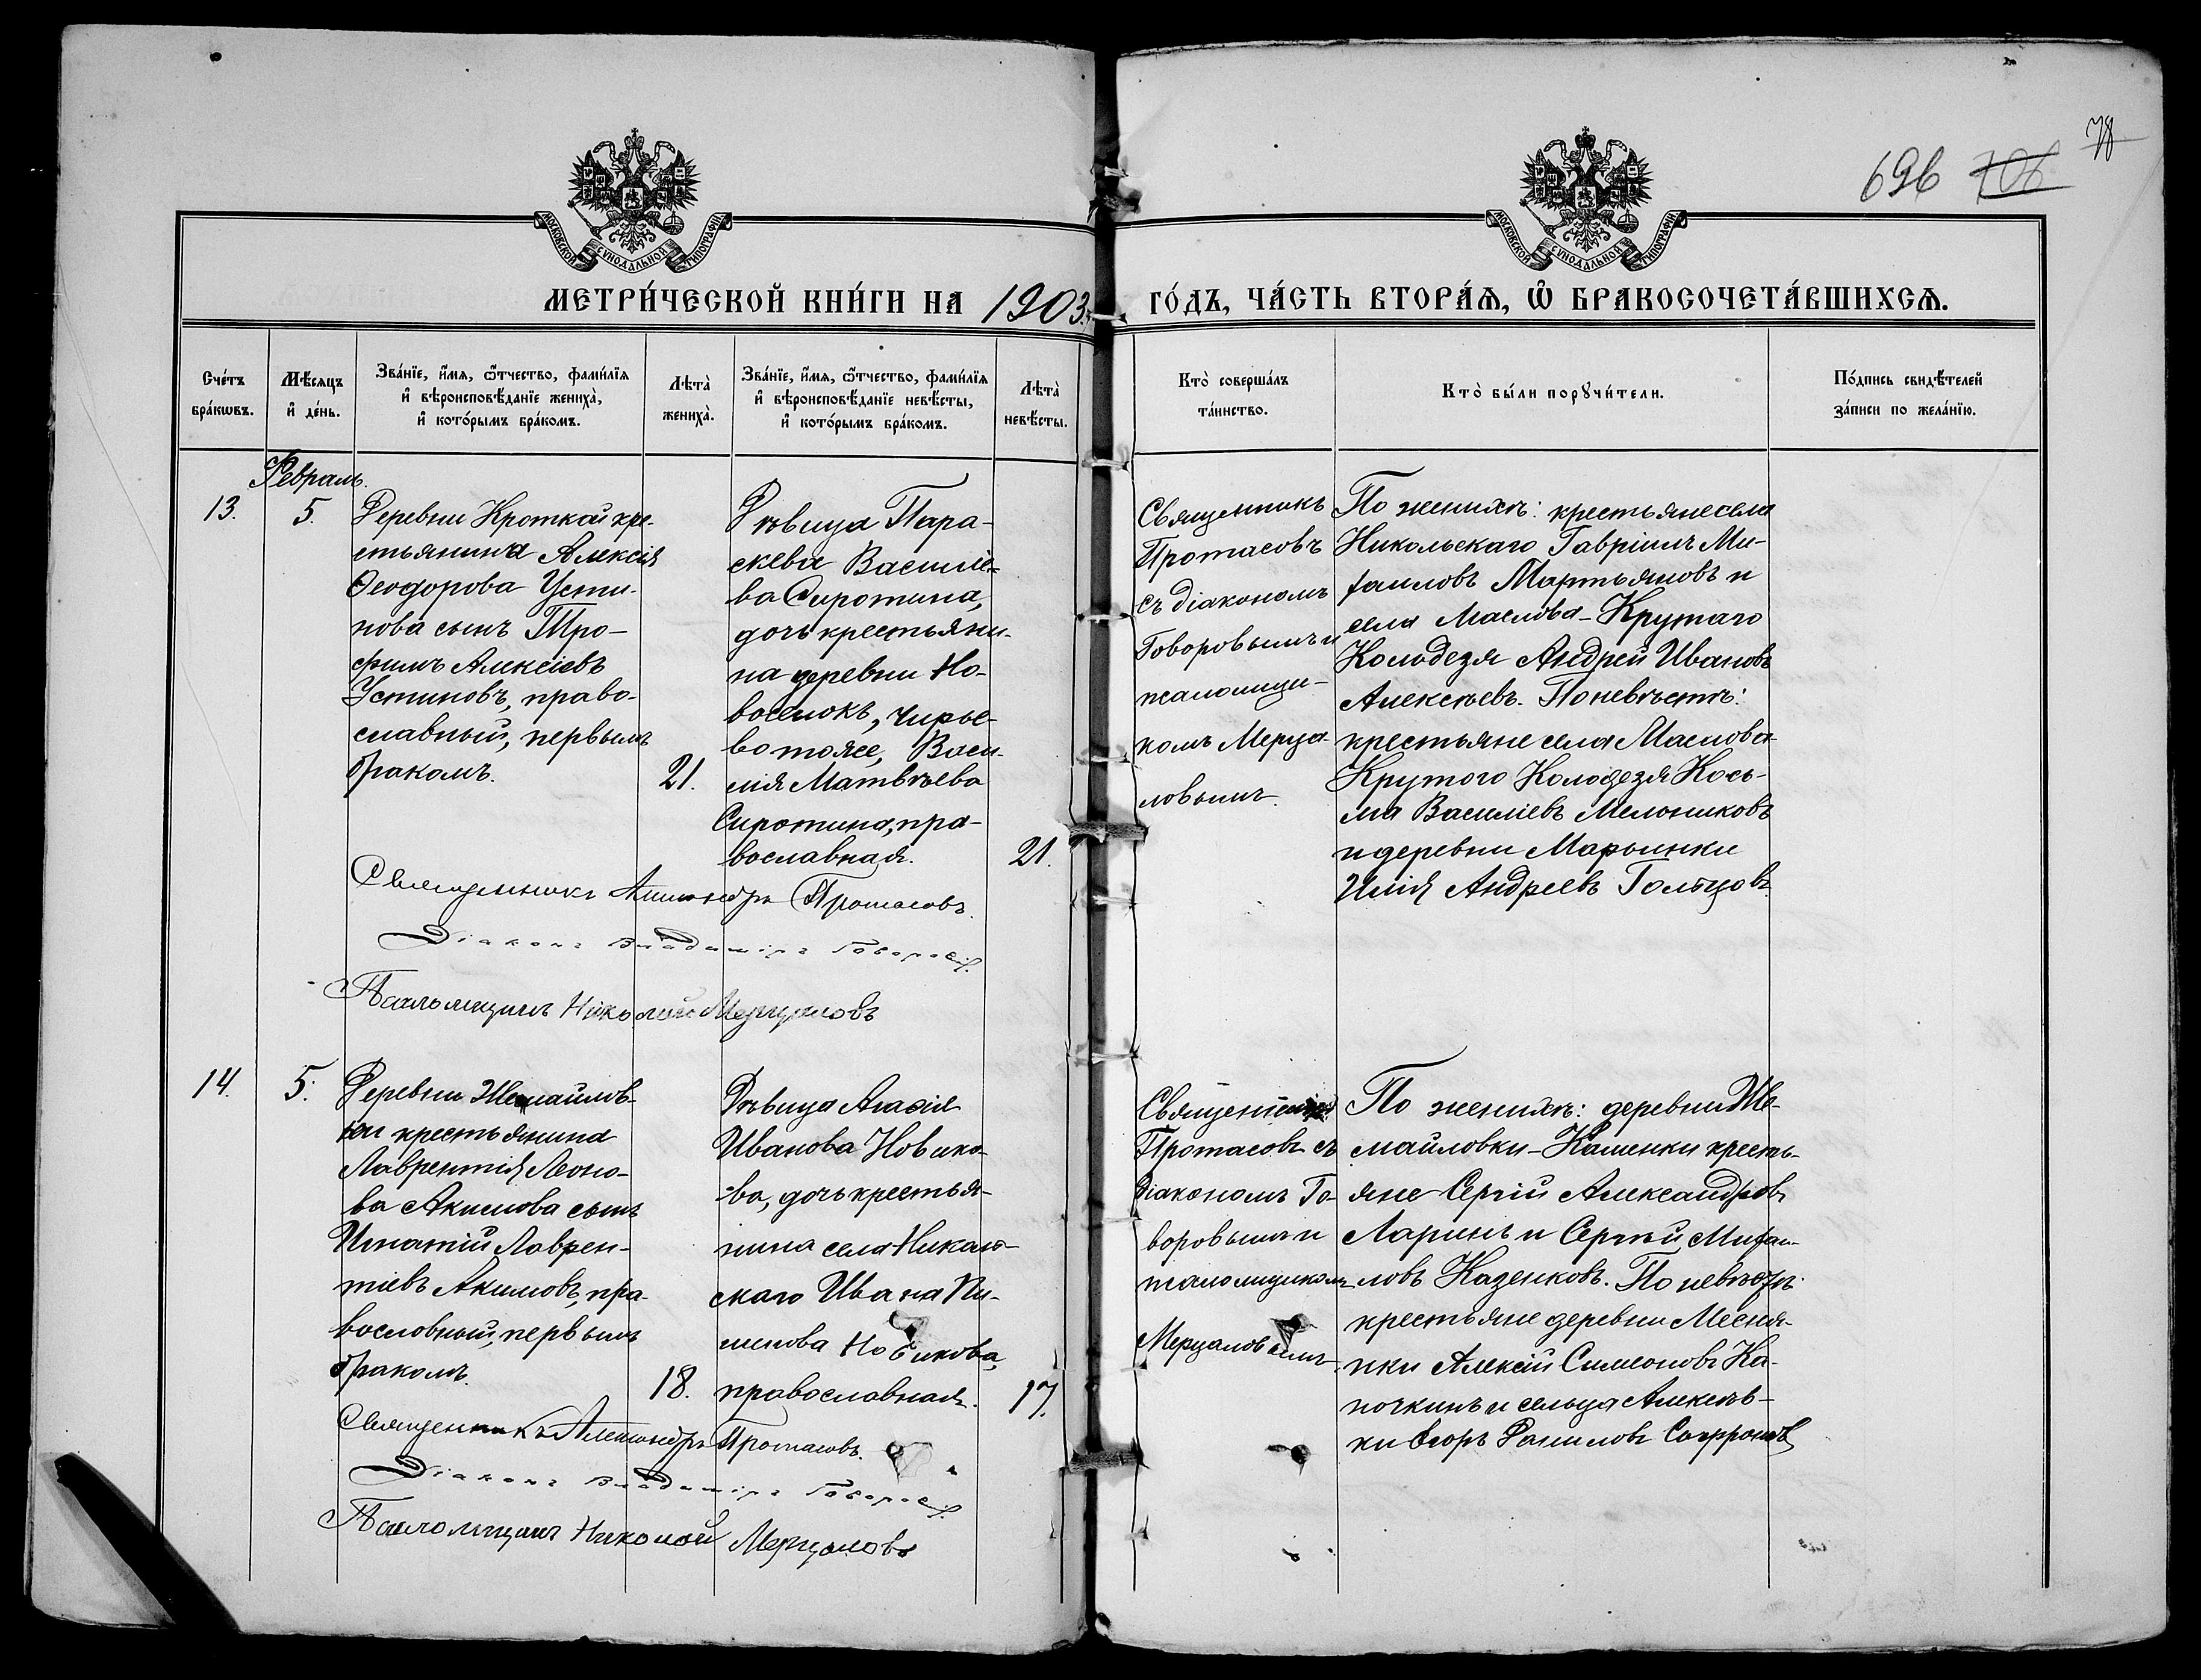 696 706 78
МОСКОВСКОЙ СѴНОДАЛЬНОЙ ТИПОГРАФІИ
МОСКОВСКОЙ СѴНОДАЛЬНОЙ ТИПОГРАФІИ
МЕТРИ́ЧЕСКОЙ КНИ́ГИ НА 1903 ГО́ДЪ, ЧА́СТЬ ВТОРА́Ѧ, Ѽ БРАКОСОЧЕТА́ВШИХСѦ.
Сче́тъ
бра́кѡвъ.
Мѣ́сѧцъ
и҆ де́нь.
Зва́нїе, и҆́мѧ, ѻ҆́тчество, фами́лїѧ
и҆ вѣроисповѣ́данїе жениха̀,
и҆ кото́рымъ бра́комъ.
Лѣта̀
жениха̀.
Зва́нїе, и҆́мѧ, ѻ҆́тчество, фами́лїѧ
и҆ вѣроисповѣ́данїе невѣ́сты,
и҆ кото́рымъ бра́комъ.
Лѣта̀
невѣ́сты.
Кто̀ соверша́лъ
та́инство.
Кто̀ бы́ли порꙋчи́тели.
По́дпись свидѣ́телей
за́писи по жела́нїю.
Февраль.
13.
5.
Деревни Кроткой кре-
стьянина Алексія
Ѳеодорова Усти-
нова сынъ Тро-
фимъ Алексіевъ
Устиновъ, право-
славный, первымъ
бракомъ.
21.
Дѣвица Пара-
скева Василіе-
ва Сиротина,
дочь крестьяни-
на деревни Но-
воселокъ,
тояже, Васи-
лія Матвѣева
Сиротина, пра-
вославная.
21.
Священникъ
Протасовъ
съ діакономъ
Говоровымъ и
псаломщи-
комъ Мерца-
ловымъ.
По женихѣ: крестьяне села
Никольскаго Гавріилъ Ми-
хаиловъ Мартьяновъ и
села Маслова-Крутаго
Колодезя Андрей Ивановъ
Алексѣевъ. По невѣстѣ:
крестьяне села Маслова-
Крутого Колодезя Кось-
ма Василіевъ Мельниковъ
и деревни Марьинки
Илія Андреевъ Гольцовъ.
Священникъ Александръ Протасовъ.
Діаконъ Владиміръ Говоровъ.
Псаломщикъ Николай Мерцаловъ
14.
5.
Деревни Измайлов-
ки крестьянина
Лаврентія Леоно-
ва Акимова сынъ
Игнатій Лаврен-
тіевъ Акимовъ, пра-
вославный, первымъ
бракомъ.
18.
Дѣвица Агаѳія
Иванова Новико-
ва, дочь крестья-
нина села Николь-
скаго Ивана Пи-
менова Новикова,
православная.
17.
Священникъ
Протасовъ съ
діакономъ Го-
воровымъ и
псаломщикомъ
Мерцаловымъ.
По женихѣ: деревни Из-
майловки-Каменки кресть-
яне Сергій Александровъ
Ларинъ и Сергѣй Михаи-
ловъ Казенковъ. По невѣстѣ:
крестьяне деревни
Алексій Симеоновъ Ка-
почкинъ и сельца Алексѣев-
ки Егоръ Даниловъ Сафроновъ
Священникъ Александръ Протасовъ.
Діаконъ Владиміръ Говоровъ.
Псаломщикъ Николай Мерцаловъ